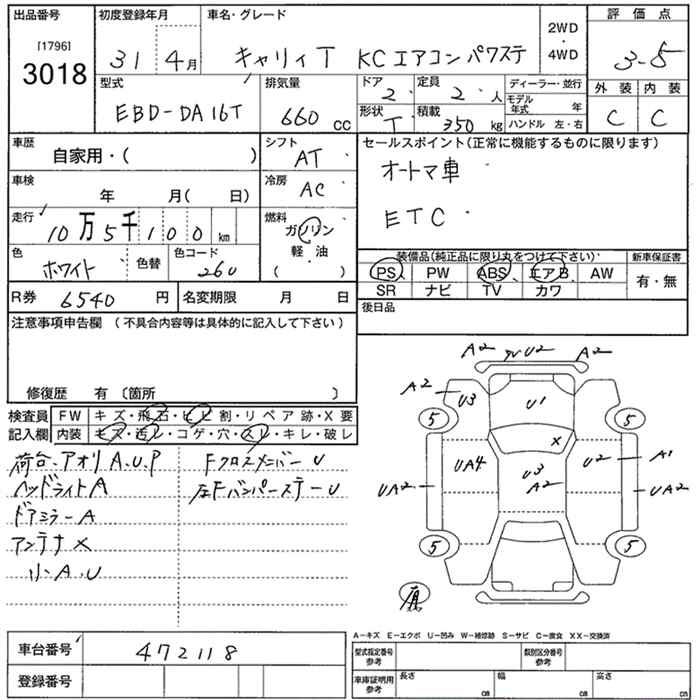 出品番号 初度登録年月 車名・グレード 2WD・4WD 評価点
[1796] 3018 31 4月 キャリィT KCエアコン パワステ 3-5
型式 排気量 ドア 2 定員 2人 ディーラー・並行 外装 内装
EBD-DA16T 660cc 形状 T 積載 350kg モデル年式 年 C C
ハンドル 左・右
車歴 自家用・( ) シフト AT セールスポイント(正常に機能するものに限ります)
車検 年 月( 日) 冷房 AC オートマ車
走行 10万5千100km 燃料 ガソリン ETC
色 ホワイト 色替 色コード 26U 軽・油 ( )
装備品(純正品に限り丸をつけて下さい) 新車保証書
PS PW ABS エアB AW 有・無
SR ナビ TV カワ
R券 6540円 名変期限 月 日
後日品
注意事項申告欄 (不具合内容等は具体的に記入して下さい)
修復歴 有 〔箇所 〕
検査員 FW キズ・飛石・ヒビ割・リペア跡・X要
記入欄 内装 キズ・汚レ・コゲ・穴・スレ・キレ・破レ
荷台.アオリ A.U.P Fクロスメンバー U
ヘッドライト A 左Fバンパーステー U
ドアミラー A
アンテナ X
小 A.U
A2 U2 A2
A2 U3 U1
5 5
X
UA4 U3 U2 A1
UA2 A2 UA2
5 5
A-キズ E-エクボ U-凹み W-補修跡 S-サビ C-腐食 XX-交換済
車台番号 472118 型式指定番号 参考 類別区分番号 参考
登録番号 車庫証明用 参考 長さ cm 幅 cm 高さ cm